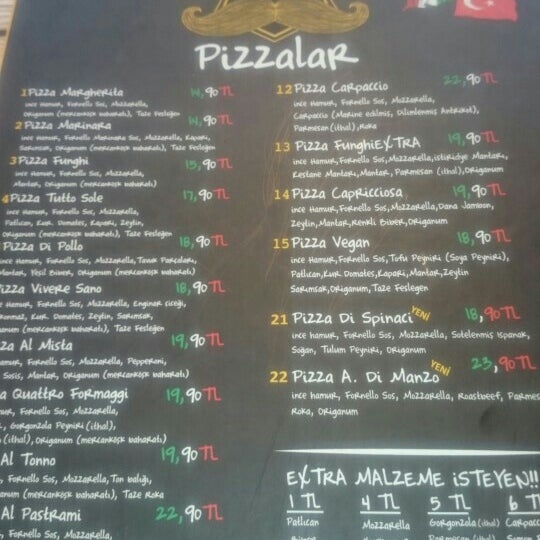 Pizzalar
1 Pizza Margherita 14,90 TL
ince Hamur, Fornello Sos, Mozzarella,
Origanum (mercanköşk baharatı), Taze Fesleğen
2 Pizza Marinara 14,90 TL
ince Hamur, Fornello Marinara Sos, Mozzarella, Kapari,
Sarımsak, Origanum (mercanköşk baharatı), Taze Fesleğen
3 Pizza Funghi 15,90 TL
ince Hamur, Fornello Sos, Mozzarella,
Mantar, Origanum (mercanköşk baharatı)
4 Pizza Tutto Sole 17,90 TL
ince Hamur, Fornello Sos, Mozzarella,
Patlıcan, Kur. Domates, Kapari, Zeytin,
Origanum (mercanköşk baharatı), Taze Fesleğen
Pizza Di Pollo 18,90 TL
ince Hamur, Fornello Sos, Mozzarella, Tavuk Parçaları,
Mantar, Yeşil Biber, Origanum (mercanköşk baharatı)
Pizza Vivere Sano 18,90 TL
Hamur, Fornello Sos, Mozzarella, Enginar çiçeği,
Kur. Domates, Zeytin, Sarımsak,
(mercanköşk baharatı), Taze Fesleğen
Al Mista 19,90 TL
Fornello Sos, Mozzarella, Pepperoni,
Sosis, Mantar, Origanum (mercanköşk baharatı)
Quattro Formaggi 19,90 TL
Fornello Sos, Mozzarella,
Gorgonzola Peyniri (ithal),
(ithal), Origanum (mercanköşk baharatı)
Al Tonno 19,90 TL
Fornello Sos, Mozzarella, Ton balığı,
(mercanköşk baharatı), Taze Roka
Al Pastrami 22,90 TL
Fornello Sos, Mozzarella,
12 Pizza Carpaccio 22,90 TL
ince Hamur, Fornello Sos, Mozzarella,
Carpaccio (Marine edilmiş, Dilimlenmiş Antrikot),
Parmesan (ithal), Roka
13 Pizza Funghi EXTRA 19,90 TL
ince Hamur, Fornello Sos, Mozzarella, istiridye Mantarı,
Kestane Mantarı, Mantar, Parmesan (ithal), Origanum
14 Pizza Capricciosa 19,90 TL
ince Hamur, Fornello Sos, Mozzarella, Dana Jambon,
Zeytin, Mantar, Renkli Biber, Origanum
15 Pizza Vegan 18,90 TL
ince Hamur, Fornello Sos, Tofu Peyniri (Soya Peyniri),
Patlıcan, Kur. Domates, Kapari, Mantar, Zeytin
Sarımsak, Origanum, Taze Fesleğen
21 Pizza Di Spinaci YENİ 18,90 TL
ince hamur, Fornello Sos, Mozzarella, Sotelenmiş Ispanak,
Soğan, Tulum Peyniri, Origanum
22 Pizza A. Di Manzo YENİ 23,90 TL
ince Hamur, Fornello Sos, Mozzarella, Roastbeef, Parmes
Roka, Origanum
EXTRA MALZEME iSTEYEN!!
1 TL 4 TL 5 TL 6 TL
Patlıcan Mozzarella Gorgonzola (ithal) Carpacc
Parmesan (ithal)